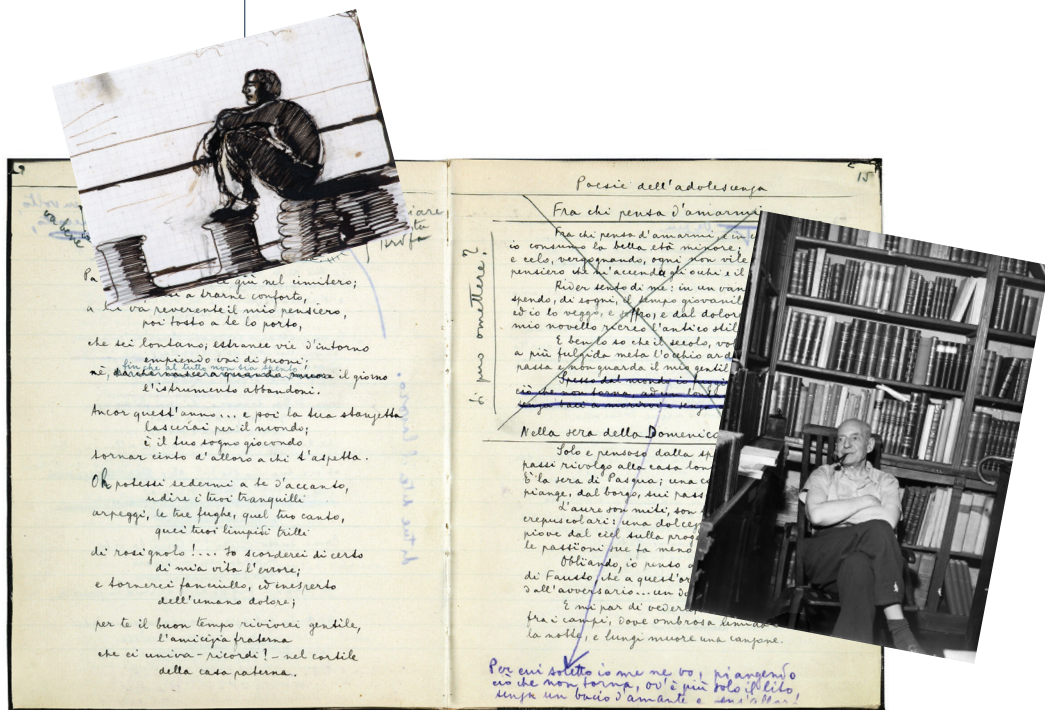 va bene
iare,
Pa giù nel cimitero;
a trarne conforto,
a lui va reverente il mio pensiero,
poi tosto a te lo porto,
che sei lontano; estranee vie d'intorno
empiendo vai di suoni;
finché al tutto non sia spento
né, il giorno
l'istrumento abbandoni.
Ancor quest'anno... e poi la tua stanzetta
lascerai per il mondo;
è il tuo sogno giocondo
tornar cinto d'alloro a chi t'aspetta.
Oh potessi sedermi a te d'accanto,
udire i tuoi tranquilli
arpeggi, le tue fughe, quel tuo canto,
quei tuoi limpidi trilli
di rosignolo!... Io scorderei di certo
di mia vita l'errore;
e tornerei fanciullo, ed inesperto
dell'umano dolore;
per te il buon tempo rivivrei gentile,
l'amicizia fraterna
che ci univa - ricordi! - nel cortile
della casa paterna.
15
Poesie dell'adolescenza
Fra chi pensa d'amarmi
si può omettere?
Fra chi pensa d'amarmi, e in
io consumo la bella età minore;
e celo, vergognando, ogni non vile
pensiero che m'accenda gli occhi e il
Rider sento di me: in un van
spendo, di sogni, il tempo giovanil
ed io lo veggo, e soffro, e dal dolore
mio novello ricreo l'antico stil
E ben lo so che il secolo, vo
a più fulgida meta l'occhio ard
passa e non guarda il mio gentil
Spesso dal mondo io
ciò che non torna, ad un
senza baci a morirvi, e senza
Nella sera della Domenica
Solo e pensoso dalla sp
passi rivolgo alla casa lon
È la sera di Pasqua; una c
piange, dal borgo, sui pass
L'aure son miti, son
crepuscolari: una dolcez
piove dal ciel sulla prog
le passioni sue fa meno
Obliando, io penso a
di Fausto, che a quest'or
dall'avversario... un
E mi par di vederlo,
fra i campi, dove ombrosa
la notte, e lungi muore una canzone.
Per cui soletto io me ne vo, piangendo
ciò che non torna, ov'è più solo il lito,
senza un bacio d'amante e